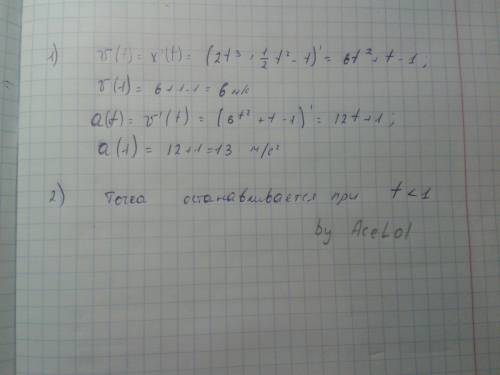 1) v(t) = x'(t) = (2t³ + ½t² - t)' = 6t² + t - 1;
v(1) = 6+1-1 = 6 м/с
a(t) = v'(t) = (6t² + t - 1)' = 12t+1;
a(1) = 12+1 = 13 м/с²
2) Точка останавливается при t < 1
by AceLol